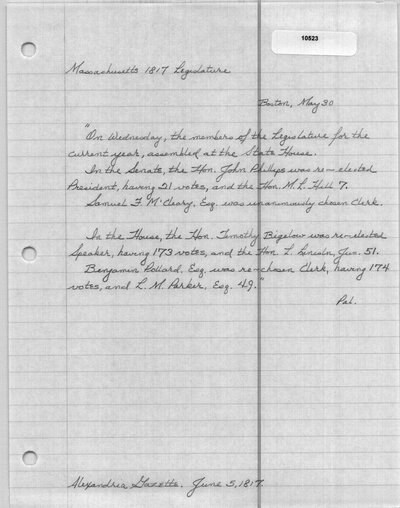 10523
Massachusetts 1817 Legislature
Boston, May 30
"On Wednesday, the members of the Legislature for the
current year, assembled at the State House.
In the Senate, the Hon. John Phillips was re-elected
President, having 21 votes, and the Hon. M. L. Hill 7.
Samuel F. McCleary, Esq. was unanimously chosen Clerk.
In the House, the Hon. Timothy Bigelow was re-elected
Speaker, having 173 votes, and the Hon. L. Lincoln, Jun. 51.
Benjamin Pollard, Esq. was re-chosen Clerk, having 174
votes, and L. M. Parker, Esq. 49."
Pal.
Alexandria Gazette. June 5, 1817.